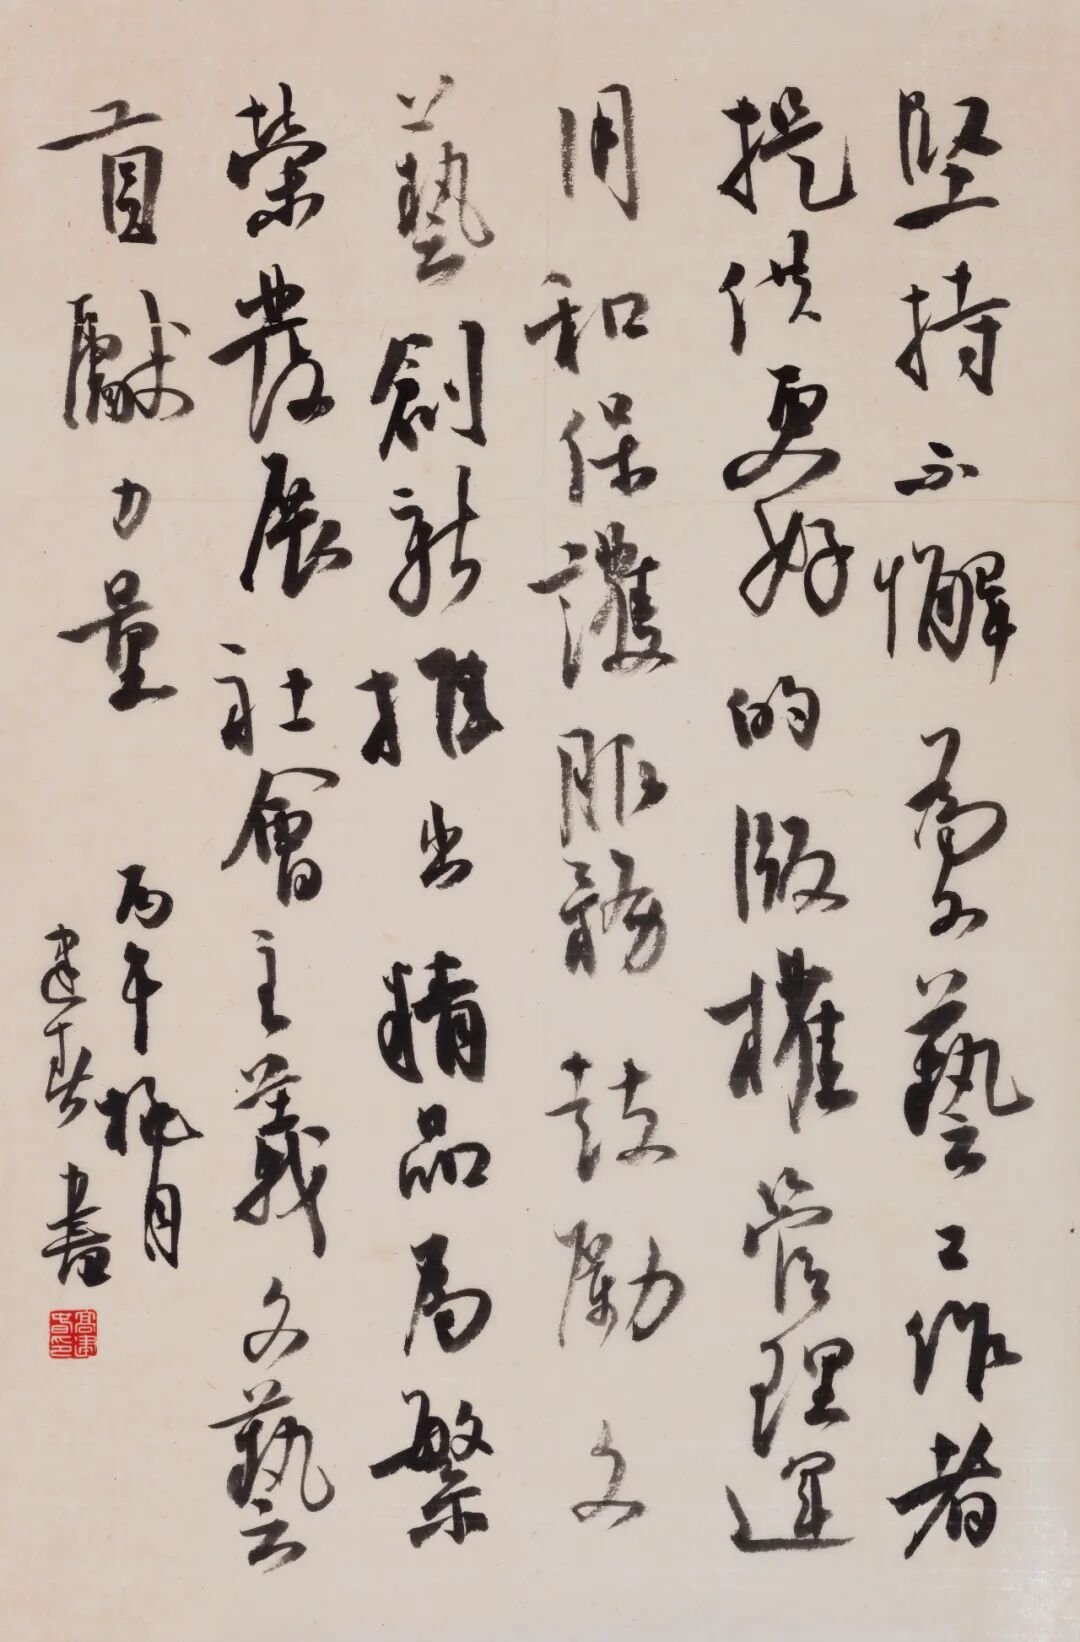 堅持不懈為文藝工作者
提供更好的版權管理運
用和保護服務鼓勵文
藝創新推出精品為繁
榮發展社會主義文藝
貢獻力量
丙午桃月
建春書